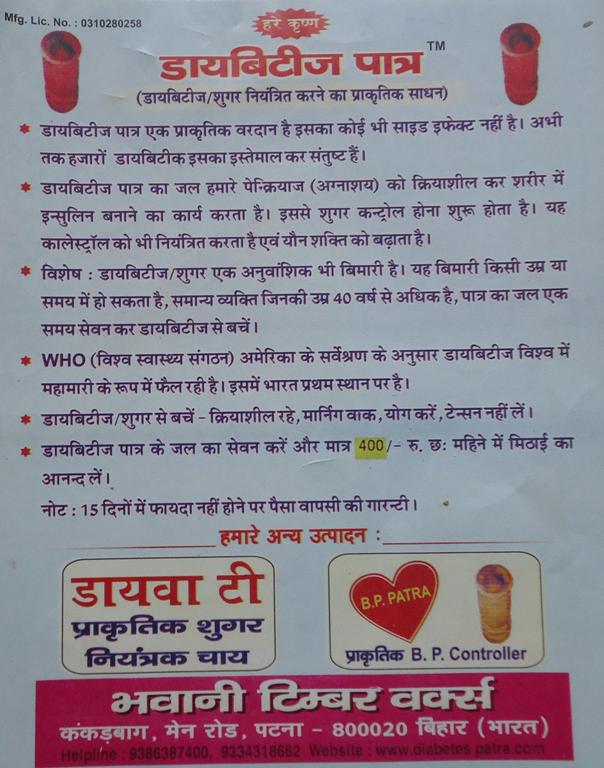 Mfg. Lic. No. : 0310280258
हरे कृष्ण
डायबिटीज पात्र TM
(डायबिटीज/शुगर नियंत्रित करने का प्राकृतिक साधन)
डायबिटीज पात्र एक प्राकृतिक वरदान है इसका कोई भी साइड इफेक्ट नहीं है। अभी
तक हजारों डायबिटीक इसका इस्तेमाल कर संतुष्ट हैं।
डायबिटीज पात्र का जल हमारे पेन्क्रियाज (अग्नाशय) को क्रियाशील कर शरीर में
इन्सुलिन बनाने का कार्य करता है। इससे शुगर कन्ट्रोल होना शुरू होता है। यह
कालेस्ट्रॉल को भी नियंत्रित करता है एवं यौन शक्ति को बढ़ाता है।
विशेष : डायबिटीज/शुगर एक अनुवांशिक भी बिमारी है। यह बिमारी किसी उम्र या
समय में हो सकता है, समान्य व्यक्ति जिनकी उम्र 40 वर्ष से अधिक है, पात्र का जल एक
समय सेवन कर डायबिटीज से बचें।
WHO (विश्व स्वास्थ्य संगठन) अमेरिका के सर्वेश्रण के अनुसार डायबिटीज विश्व में
महामारी के रूप में फैल रही है। इसमें भारत प्रथम स्थान पर है।
डायबिटीज/शुगर से बचें - क्रियाशील रहे, मार्निग वाक, योग करें, टेन्सन नहीं लें।
डायबिटीज पात्र के जल का सेवन करें और मात्र 400/- रु. छः महिने में मिठाई का
आनन्द लें।
नोट : 15 दिनों में फायदा नहीं होने पर पैसा वापसी की गारन्टी।
हमारे अन्य उत्पादन :
डायवा टी
प्राकृतिक शुगर
नियंत्रक चाय
B.P. PATRA
प्राकृतिक B. P. Controller
भवानी टिम्बर वर्क्स
कंकड़बाग, मेन रोड, पटना - 800020 बिहार (भारत)
Helpline : 9386387400, 9334318662 Website : www.diabetes patra.com